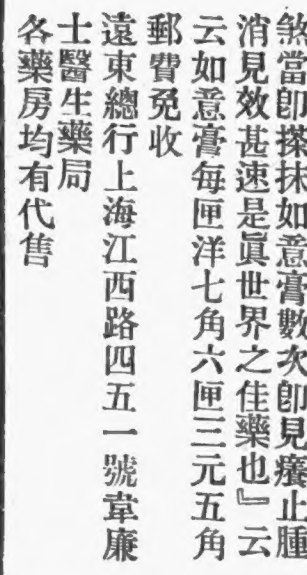 煞當卽搽抹如意膏數次卽見癢止腫
消見效甚速是眞世界之佳藥也』云
云如意膏每匣洋七角六匣三元五角
郵費免收
遠東總行上海江西路四五一號韋廉
士醫生藥局
各藥房均有代售